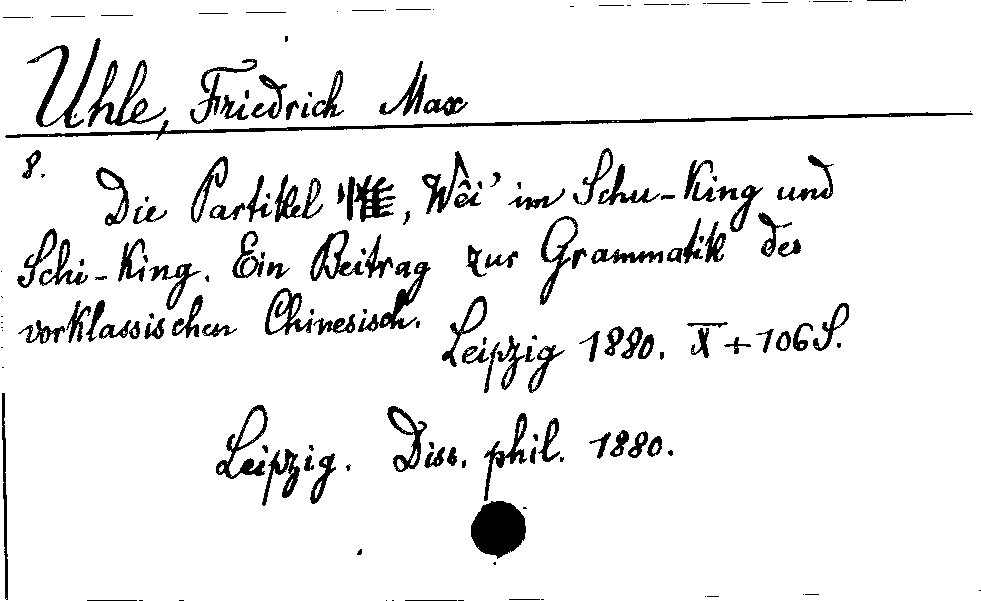 Uhle, Friedrich Max
8.
Die Partikel 惟 ‚Wêi’ im Schu-King und
Schi-King. Ein Beitrag zur Grammatik des
vorklassischen Chinesisch.
Leipzig 1880. X + 106 S.
Leipzig. Diss. phil. 1880.